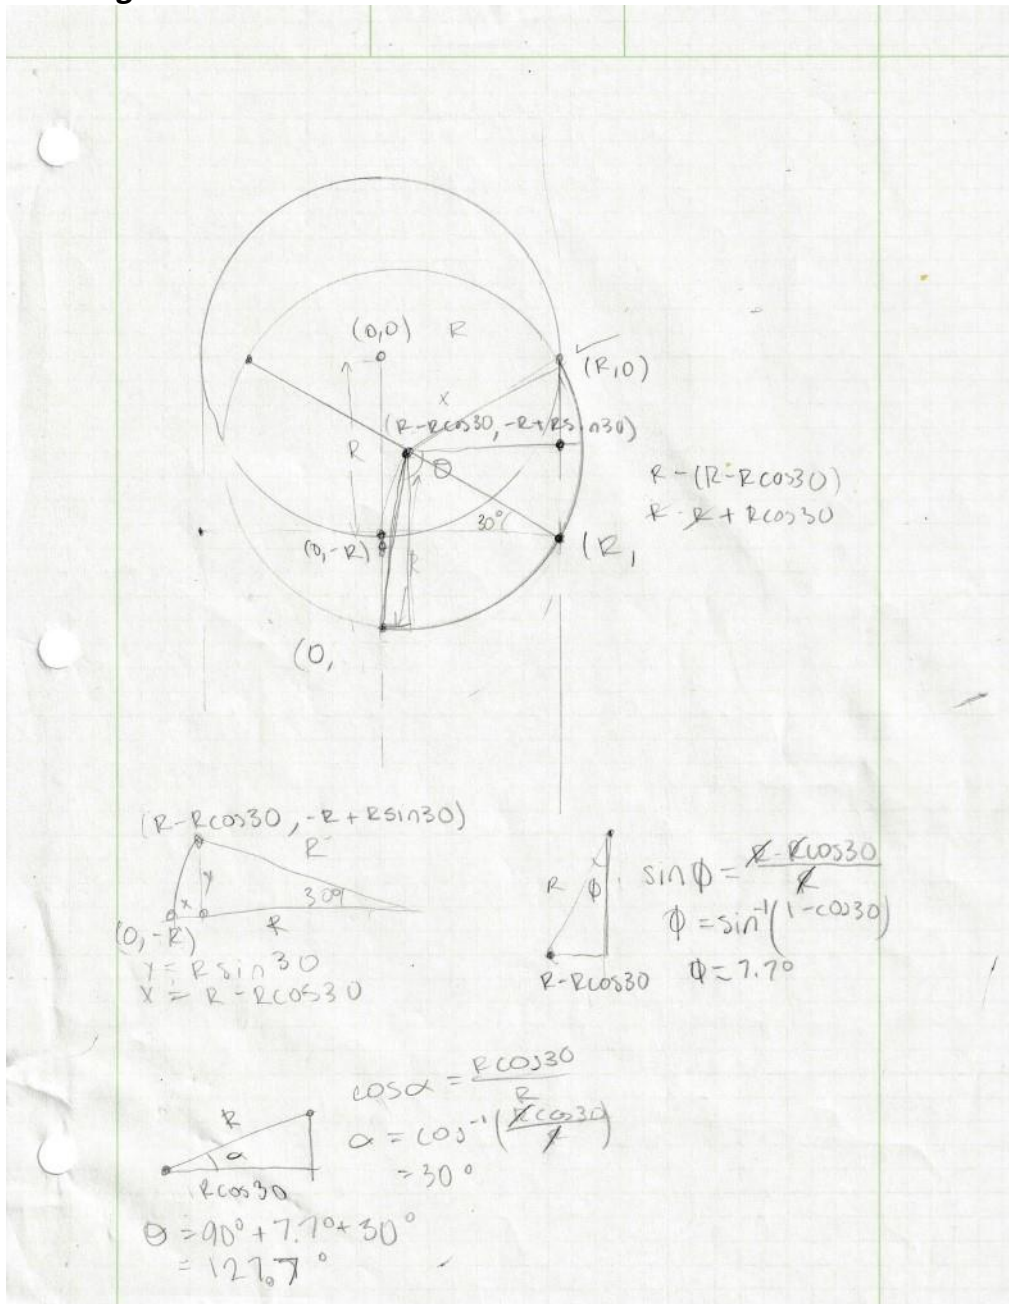 (0,0)
R
(R,0)
x
(R-Rcos30, -R+Rsin30)
R
θ
R-(R-Rcos30)
R-R+Rcos30
30°
(0,-R)
R
(R,
(0,
(R-Rcos30, -R+Rsin30)
R
y
x
30°
R
(0,-R)
y = Rsin30
x = R-Rcos30
R
ϕ
R-Rcos30
sinϕ = R-Rcos30 / R
ϕ = sin⁻¹(1-cos30)
ϕ = 7.7°
R
α
Rcos30
cosα = Rcos30 / R
α = cos⁻¹(Rcos30 / R)
= 30°
θ = 90° + 7.7° + 30°
= 127.7°